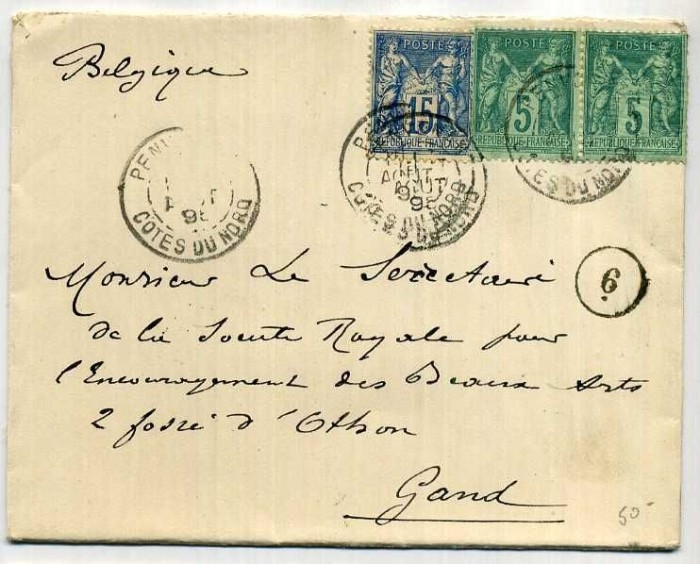 Belgique
POSTE
15
REPUBLIQUE FRANÇAISE
POSTE
5
REPUBLIQUE FRANÇAISE
POSTE
5
REPUBLIQUE FRANÇAISE
COTES DU NORD
AOUT
COTES DU NORD
COTES DU NORD
6
Monsieur Le Secrétaire
de la Société Royale pour
l'Encouragement des Beaux Arts
2 fossé d'Othon
Gand
50